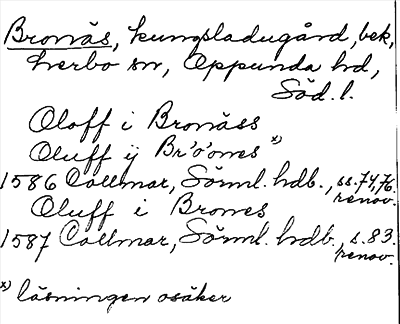 Bronäs, kungsladugård, bek,
herbo sn, Oppunda hd,
Söd. l.
Oloff i Bronäss
Oluff ij Br'o'ones x)
1586 Collmar, Sörml. hdb., ss. 74, 76.
renov.
Oluff i Brones
1587 Collmar, Sörml. hdb., s. 83.
renov.
x) läsningen osäker